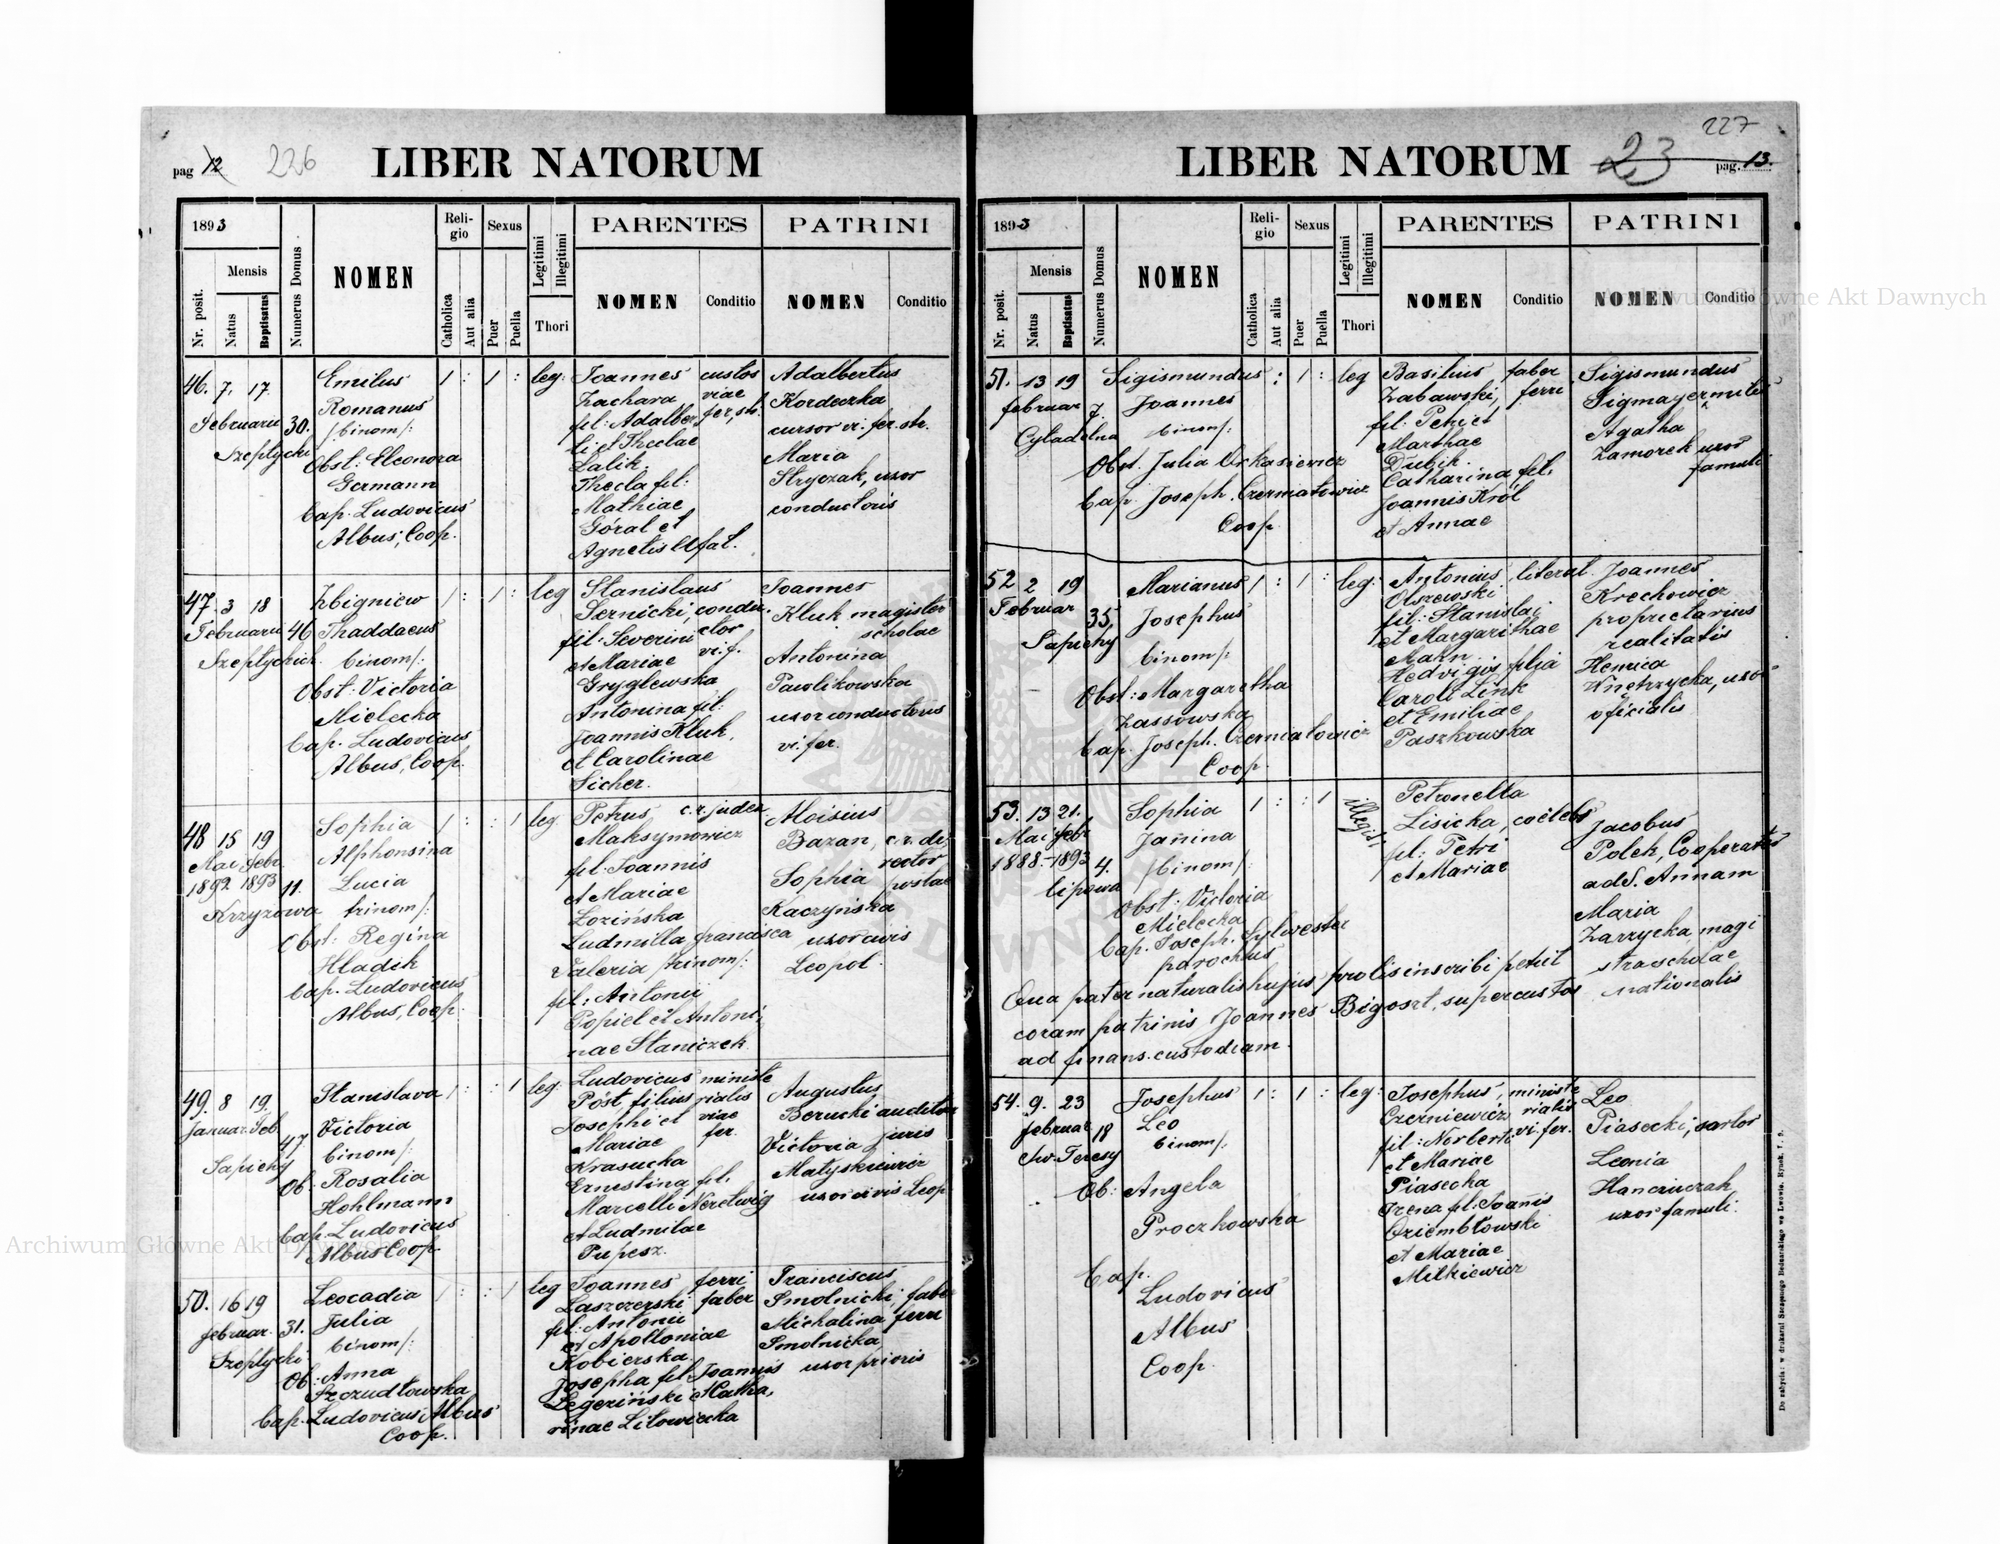 pag 12 226 LIBER NATORUM
1893
Nr. posit.
Mensis
Natus
Baptisatus
Numerus Domus
NOMEN
Religio
Catholica
Aut alia
Sexus
Puer
Puella
Legitimi
Illegitimi
Thori
PARENTES
NOMEN Conditio
PATRINI
NOMEN Conditio
46. 7. 17.
Februarii 30.
Szeptyckich
Emilus
Romanus
/:binom:/
Obst: Eleonora
Germann
Bap. Ludovicus
Albus, Coop.
1 : 1 : leg:
Joannes custos
Zachara viae
fil: Adalber, fer, st.
ti et Theclae
Zalik.
Thecla fil:
Mathiae
Góral et
Agnetis
Adalbertus
Kordeczka
cursor vi. fer. st.
Maria
Stryczak, uxor
conductoris
47. 3 18
Februarii 46
Szeptyckich
Zbigniew
Thaddaeus
binom/:
Obst: Victoria
Mielecka
Bap. Ludovicus
Albus, Coop.
1 : 1 : leg
Stanislaus
Sernicki, condu,
fil: Severini ctor
et Mariae vi. f.
Gryglewska
Antonina fil:
Joannis Kluk,
et Carolinae
Sicher.
Joannes
Kluk magister
scholae
Antonina
Pawlikowska
uxor conductoris
vi. fer.
48 15 19
Mai. febr.
1892 1893 11.
Krzyzowa
Sophia
Alphonsina
Lucia
trinom/:
Obst: Regina
Hladik
Bap. Ludovicus
Albus, Coop.
1 : : 1 leg.
Petrus c.r. judex
Maksymowicz
fil: Joannis
et Mariae
Łozińska
Ludmilla Francisca
Valeria /trinom/:
fil: Antonii
Popiel et Antoni,
nae Staniczek
Aloisius
Bazan, c.r. di
rector
Sophia postae
Kaczyńska
uxor civis
Leopol.
49. 8 19.
Januar. Feb.
47.
Sapiehy
Stanislava
Victoria
binom/:
Ob: Rosalia
Hohlmann
Bap. Ludovicus
Albus Coop.
1 : : 1 leg.
Ludovicus ministe
Póst filius rialis
Josephi et viae
Mariae fer.
Krasucka
Ernestina, fil.
Marcelli Neretwig
et Ludmilae
Pupesz.
Augustus
Berucki auditor
Victoria juris
Matyskiewicz
uxor civis Leop.
50. 16 19
februar. 31.
Szeptycki.
Leocadia
Julia
binom/:
Ob: Anna
Szczudłowska
Bap. Ludovicus Albus
Coop.
1 : : 1 leg
Joannes ferri
Laszczerski faber
fil: Antonii
et Apolloniae
Kobierska.
Josepha fil Joannis
Legeziński et Katha,
rinae Litowiecka
Franciscus
Smolnicki, faber
Michalina ferri
Smolnicka,
uxor prioris
LIBER NATORUM 23 227 pag. 13.
1893
Nr. posit.
Mensis
Natus
Baptisatus
Numerus Domus
NOMEN
Religio
Catholica
Aut alia
Sexus
Puer
Puella
Legitimi
Illegitimi
Thori
PARENTES
NOMEN Conditio
PATRINI
NOMEN Conditio
51. 13 19
februar 7.
Cytadelna
Sigismundus
Joannes
binom/:
Obst. Julia
Bap. Joseph. Czerniatowicz
Coop.
: 1 : leg
Basilius faber
Zabawski, ferri
fil: Petri et
Marthae
Dubik.
Catharina fil.
Joannis Król
et Annae
Sigismundus
Sigmayer, miles
Agatha
Zamorek uxor
famuli
52 2 19
Februar 35.
Sapiehy
Marianus
Josephus
binom/:
Obst: Margaretha
Zassowska
Bap. Joseph. Czerniatowicz
Coop.
1 : 1 : leg:
Antonius, literat.
Olszewski
fil: Stanislai
et Margarithae
Makn.
Hedvigis filia
Caroli Link
et Emiliae
Paszkowska
Joannes
Krechowicz
proprietarius
realitatis
Henrica
Wnętrzycka, uxor
offizialis
53. 13 21.
Mai febr
1888.-1893 4.
lipowa
Sophia
Janina
/binom/:
Obst: Victoria
Mielecka
Bap. Joseph. Sylwester
parochus
1 : : 1 illegit.
Petronella
Lisicka, coelebs
fil: Petri
et Mariae
Jacobus
Polek, Cooperator
ad S. Annam
Maria
Zarzycka, magi
stra scholae
nationalis
Qua pater naturalis hujus prolis inscribi petiit
coram patrinis Joannes Bigoszt, supercustos
ad finans. custodiam.
54. 9. 23
februar 18
Św. Teresy
Josephus
Leo
binom/:
Ob: Angela
Proczkowska
Bap.
Ludovicus
Albus
Coop.
1 : 1 : leg:
Josephus, ministe
Czerniewicz rialis
fil: Norberti vi. fer.
et Mariae
Piasecka
Irena fil: Joanis
Oziembłowski
et Mariae
Milkiewicz
Leo
Piasecki, sartor
Leonia
Hanczuczak
uxor famuli.
Do nabycia: w drukarni Szczęsnego Bednarskiego we Lwowie, Rynek, l. 9.
Archiwum Główne Akt Dawnych
Archiwum Główne Akt Dawnych